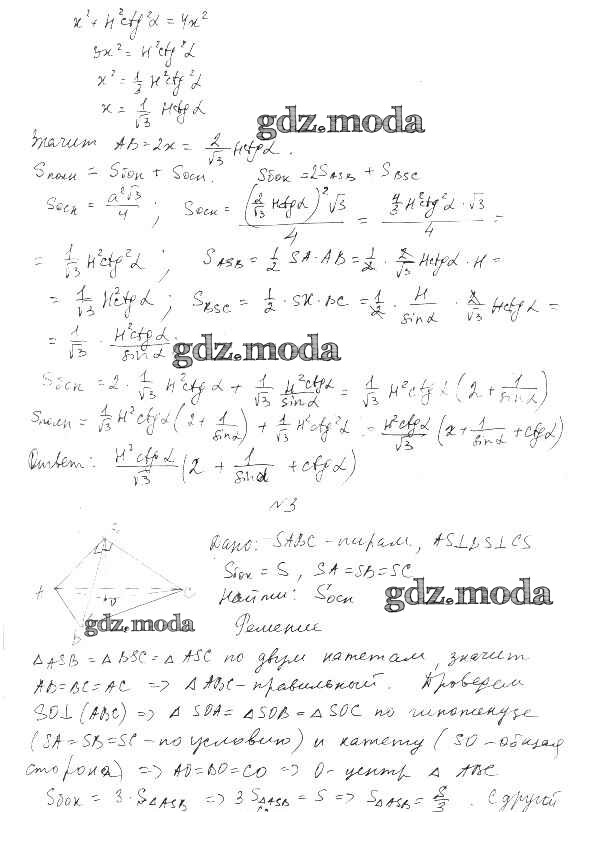 x² + H²ctg²α = 4x²
3x² = H²ctg²α
x² = 1/3 H²ctg²α
x = 1/√3 Hctgα
gdz.moda
Значит AB = 2x = 2/√3 Hctgα.
Sполн = Sбок + Sосн. Sбок = 2S_ASB + S_BSC
Sосн = a²√3/4 ; Sосн = (2/√3 Hctgα)²√3/4 = 4/3 H²ctg²α·√3/4 =
= 1/√3 H²ctg²α ; S_ASB = 1/2 SA·AB = 1/2 · 2/√3 Hctgα·H =
= 1/√3 H²ctgα ; S_BSC = 1/2 · SK·BC = 1/2 · H/sinα · 2/√3 Hctgα =
= 1/√3 · H²ctgα/sinα.
gdz.moda
Sбок = 2· 1/√3 H²ctgα + 1/√3 H²ctgα/sinα = 1/√3 H²ctgα (2 + 1/sinα)
Sполн = 1/√3 H²ctgα (2 + 1/sinα) + 1/√3 H²ctg²α = H²ctgα/√3 (2 + 1/sinα + ctgα)
Ответ: H²ctgα/√3 (2 + 1/sinα + ctgα)
N3
S
Дано: SABC – пирам, AS⊥BS⊥CS
Sбок = S, SA = SB = SC
A
C
O
Найти: Sосн
gdz.moda
gdz.moda
B
Решение
△ASB = △BSC = △ASC по двум катетам, значит
AB = BC = AC => △ABC – правильный. Проведем
SO⊥(ABC) => △SOA = △SOB = △SOC по гипотенузе
(SA = SB = SC – по условию) и катету (SO – общая
сторона) => AO = BO = CO => O – центр △ABC
Sбок = 3·S△ASB => 3S△ASB = S => S△ASB = S/3 . С другой